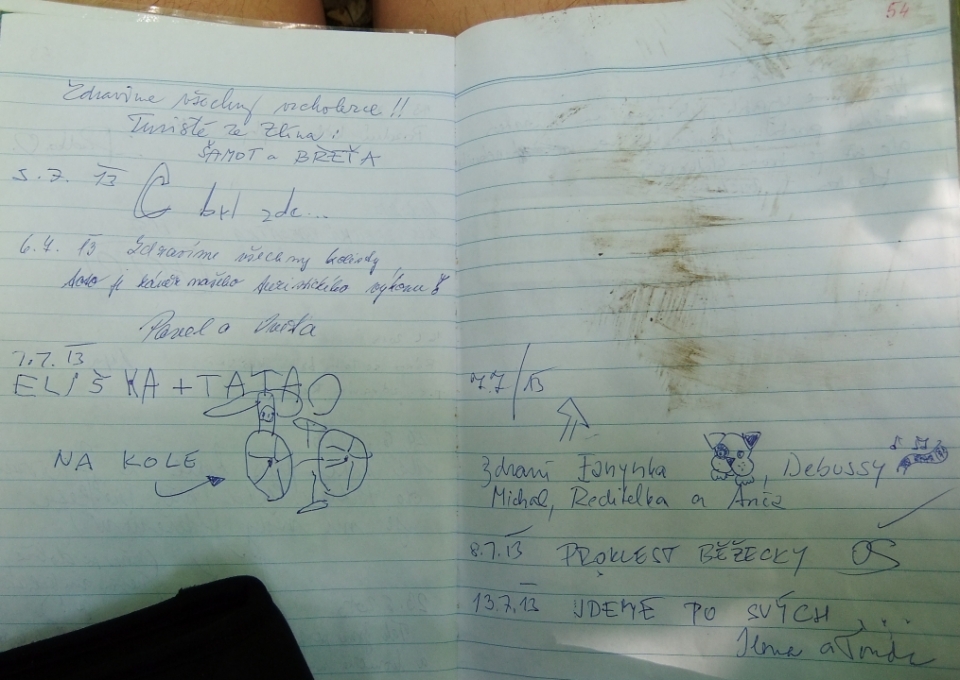 Zdravíme všechny vrcholovce!!
Turisté ze Zlína:
ŠAMOT a BŘEŤA
5.7. 13 byl zde...
6.7. 13 Zdravíme všechny
našeho turistického výkonu
Pavel a Iveta
7.7. 13
ELIŠKA + TATA
NA KOLE
54
7.7/13
Zdraví Fanynka, Debussy
Michal, Ředitelka a
8.7.13 PROKLEST BĚŽECKY OS
13.7.13 JDEME PO SVÝCH ...
Ilona a Tonda